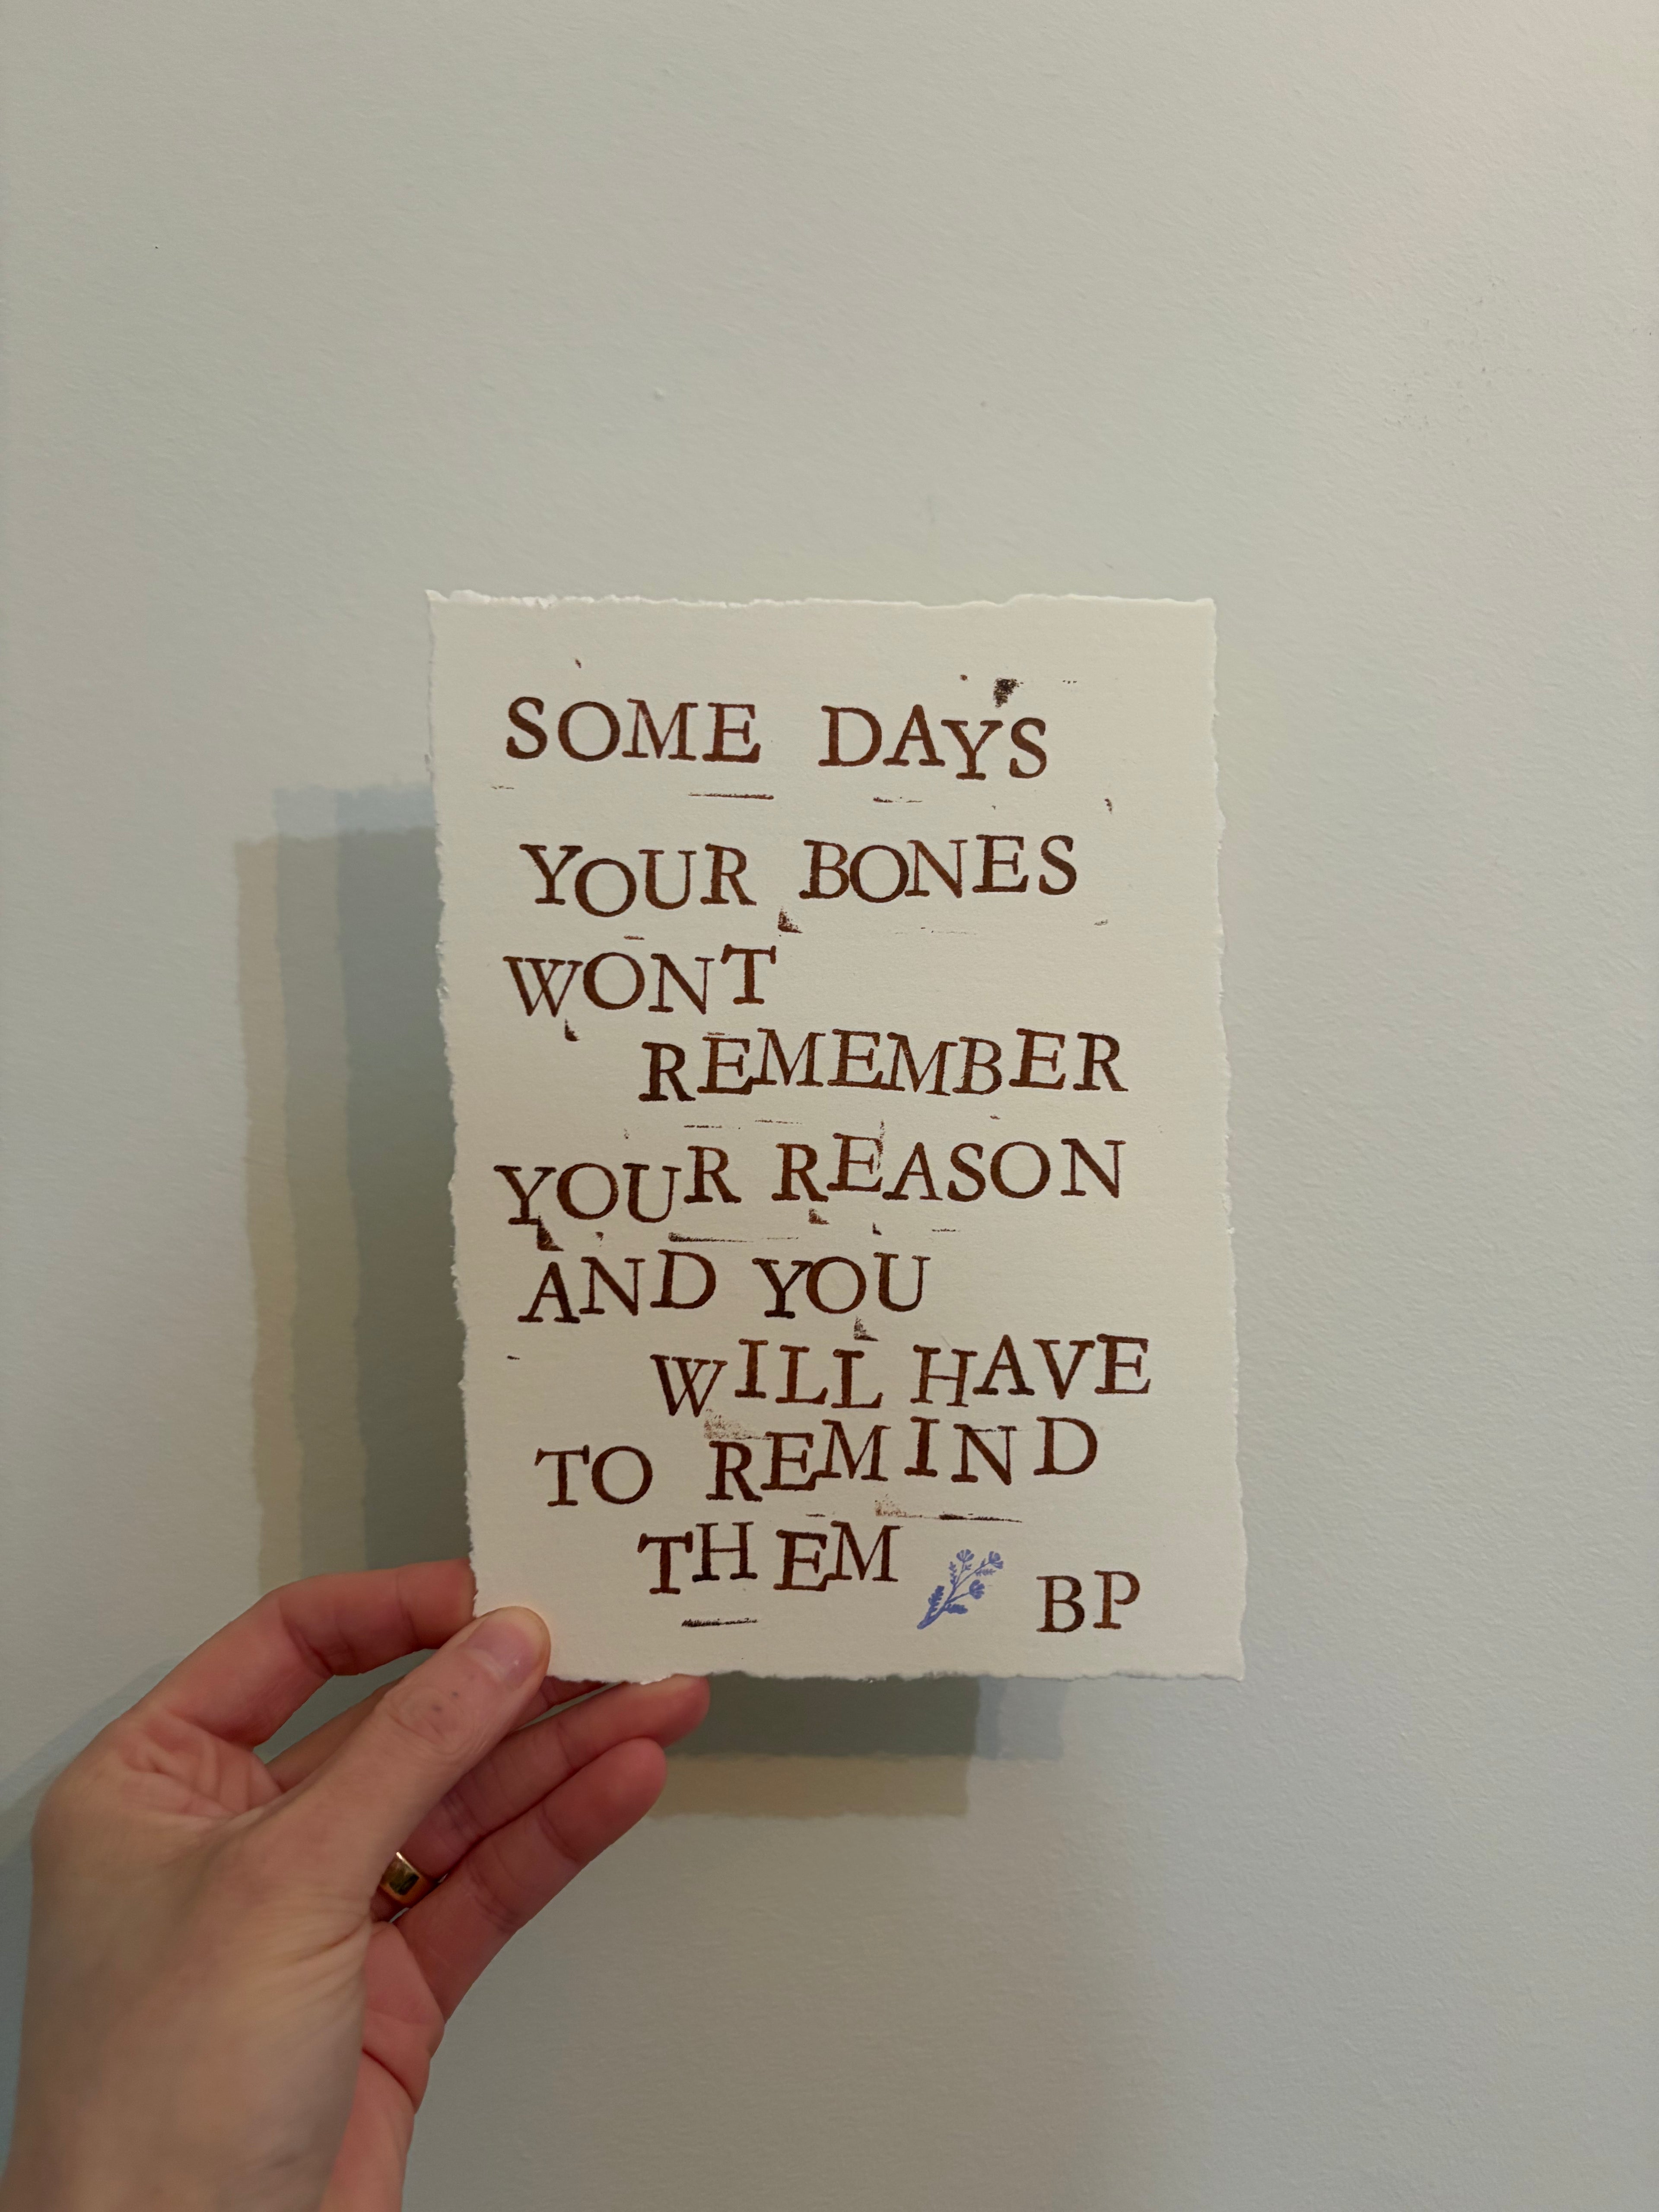 SOME DAYS
YOUR BONES
WONT
REMEMBER
YOUR REASON
AND YOU
WILL HAVE
TO REMIND
THEM
BP